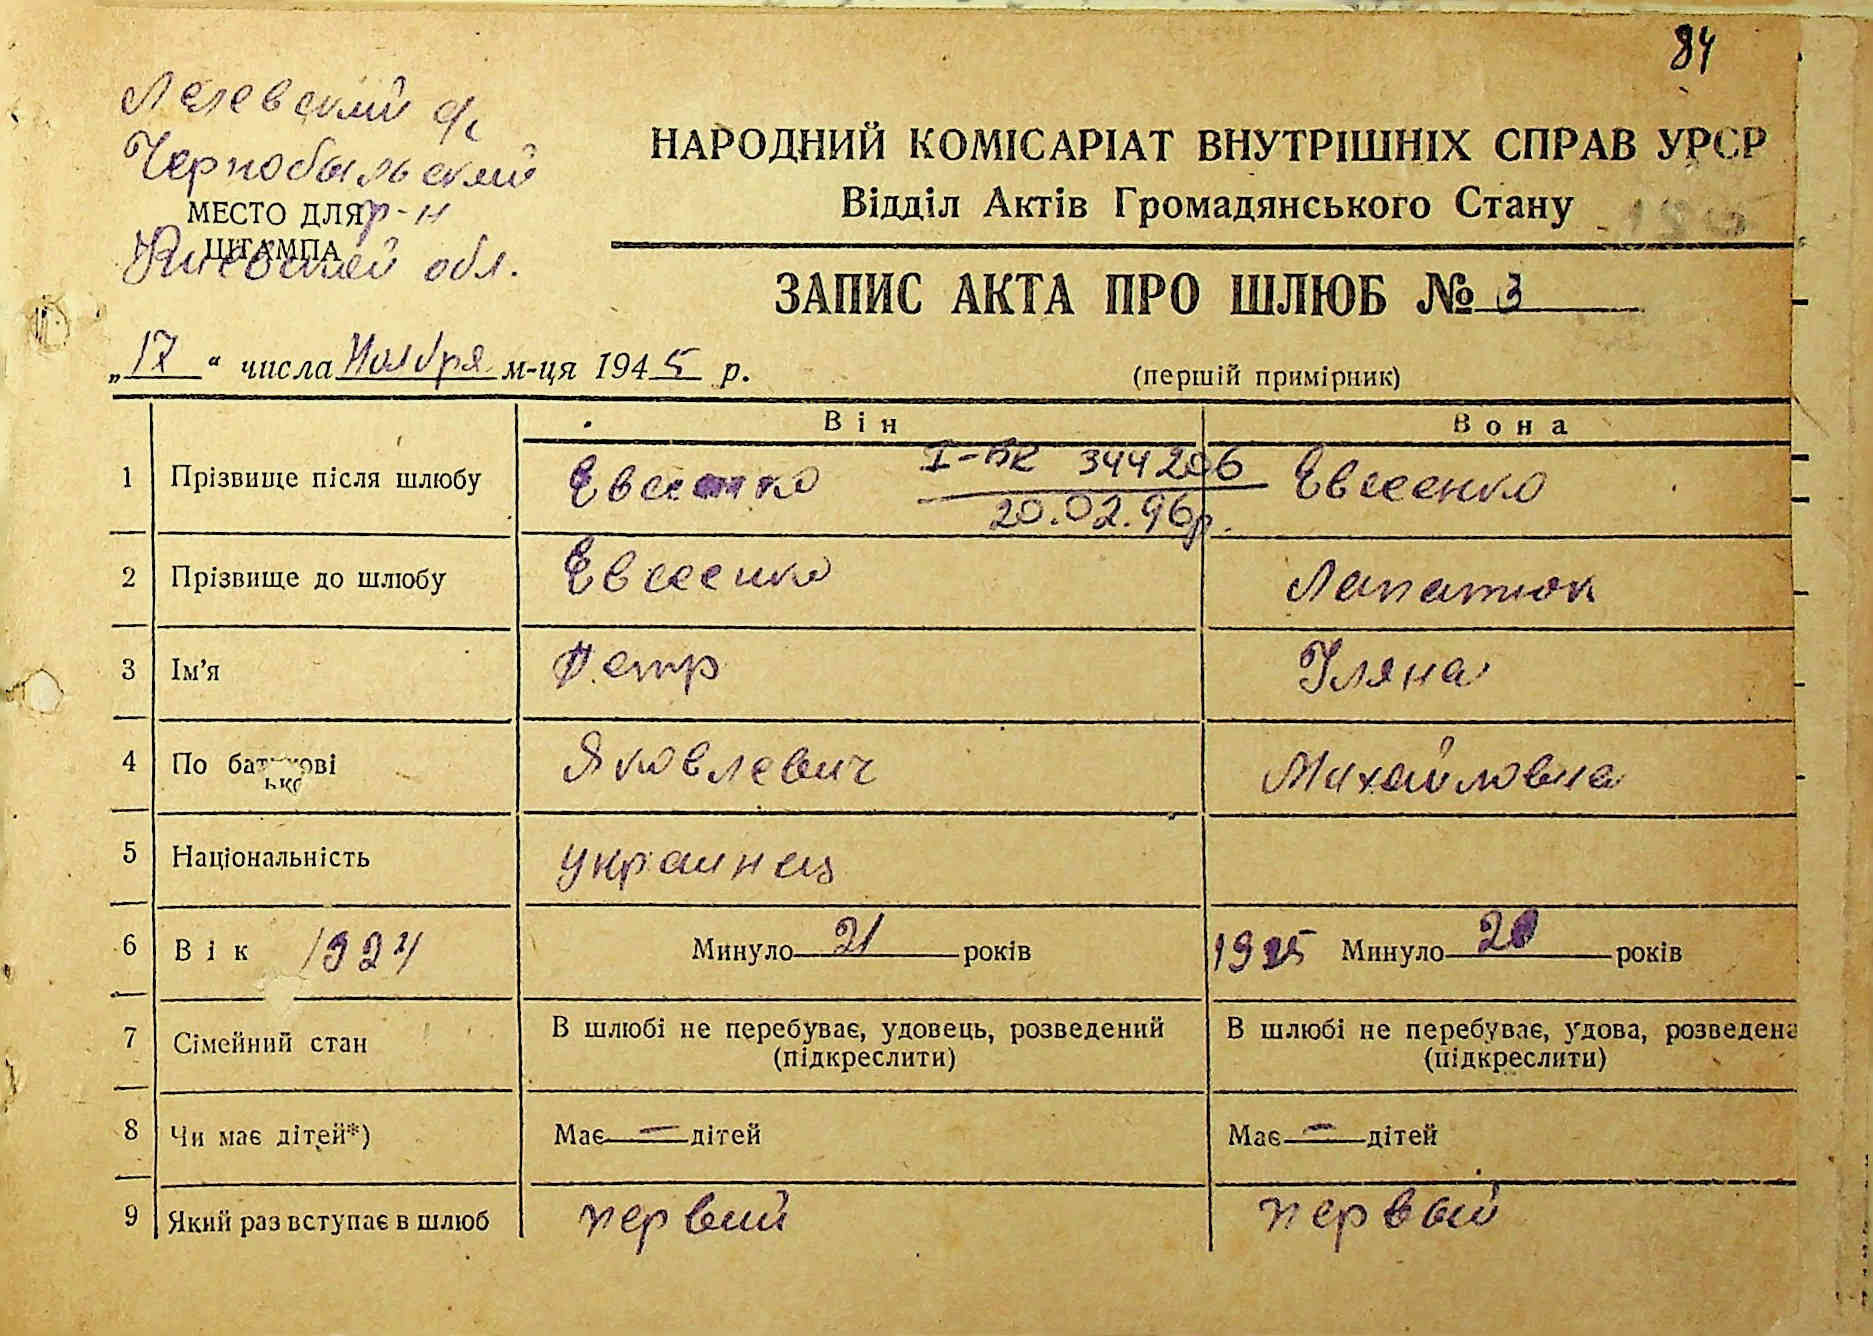 84
Лелевский с/с
Чернобыльский
МЕСТО ДЛЯ р-н
ШТАМПА
Киевской обл.
НАРОДНИЙ КОМІСАРІАТ ВНУТРІШНІХ СПРАВ УРСР
Відділ Актів Громадянського Стану
ЗАПИС АКТА ПРО ШЛЮБ № 3
„17“ числа Ноября м-ця 1945 р.
(першій примірник)
Він Вона
1 Прізвище після шлюбу Евсеенко I-БК 344206 Евсеенко
20.02.96р.
2 Прізвище до шлюбу Евсеенко Лапатюк
3 Ім'я Петр Уляна
4 По батькові Яковлевич Михайловна
5 Національність украинец
6 Вік 1924 Минуло 21 років 1925 Минуло 20 років
7 Сімейний стан В шлюбі не перебуває, удовець, розведений В шлюбі не перебуває, удова, розведена
(підкреслити) (підкреслити)
8 Чи має дітей*) Має — дітей Має — дітей
9 Який раз вступає в шлюб первый первый